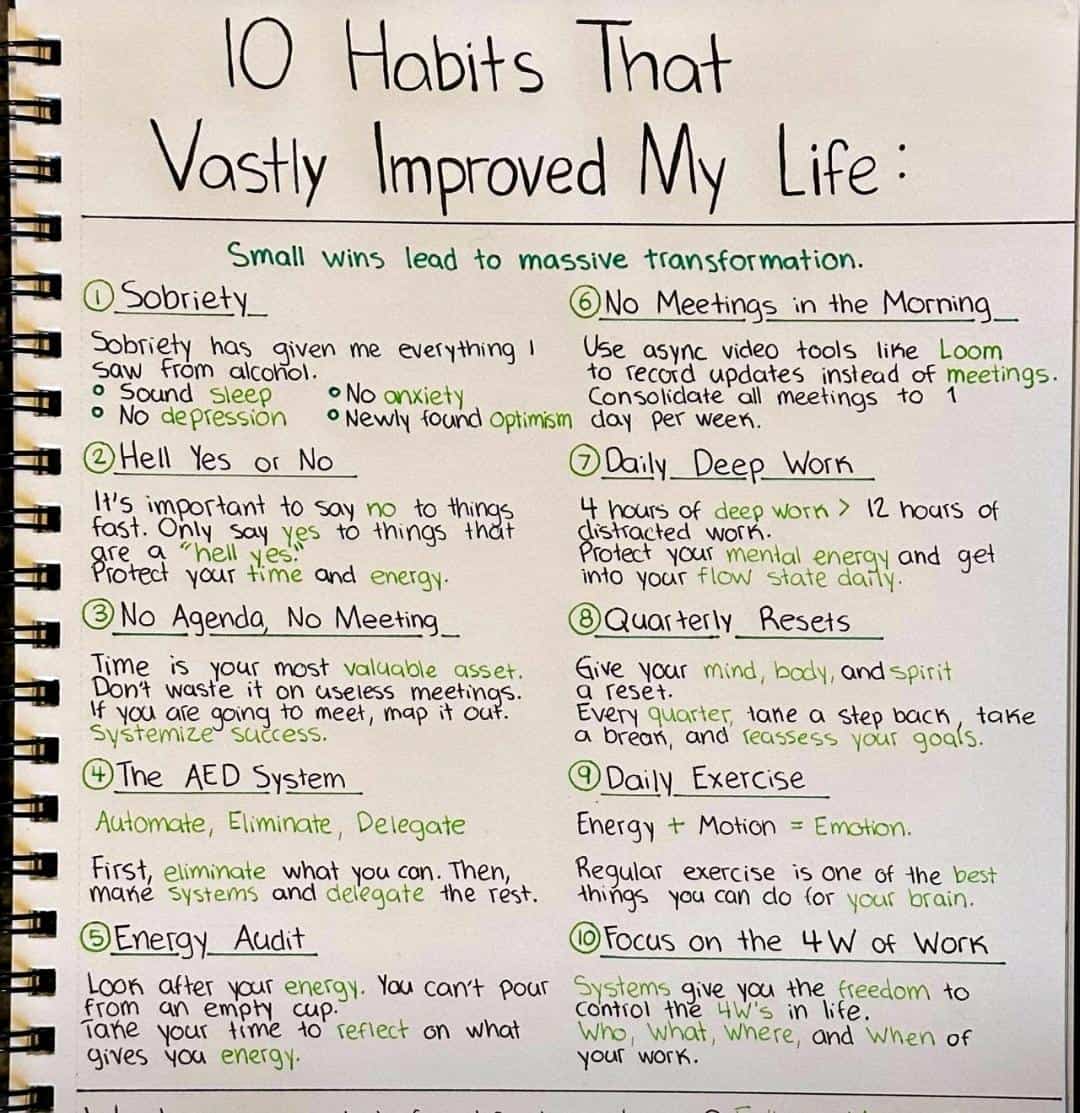 10 Habits That
Vastly Improved My Life:
Small wins lead to massive transformation.
1 Sobriety
Sobriety has given me everything I
saw from alcohol.
Sound sleep
No anxiety
No depression
Newly found optimism
2 Hell Yes or No
It's important to say no to things
fast. Only say yes to things that
are a "hell yes."
Protect your time and energy.
3 No Agenda, No Meeting
Time is your most valuable asset.
Don't waste it on useless meetings.
If you are going to meet, map it out.
Systemize success.
4 The AED System
Automate, Eliminate, Delegate
First, eliminate what you can. Then,
make systems and delegate the rest.
5 Energy Audit
Look after your energy. You can't pour
from an empty cup.
Take your time to reflect on what
gives you energy.
6 No Meetings in the Morning
Use async video tools like Loom
to record updates instead of meetings.
Consolidate all meetings to 1
day per week.
7 Daily Deep Work
4 hours of deep work > 12 hours of
distracted work.
Protect your mental energy and get
into your flow state daily.
8 Quarterly Resets
Give your mind, body, and spirit
a reset.
Every quarter, take a step back, take
a break, and reassess your goals.
9 Daily Exercise
Energy + Motion = Emotion.
Regular exercise is one of the best
things you can do for your brain.
10 Focus on the 4W of Work
Systems give you the freedom to
control the 4W's in life.
Who, What, Where, and When of
your work.